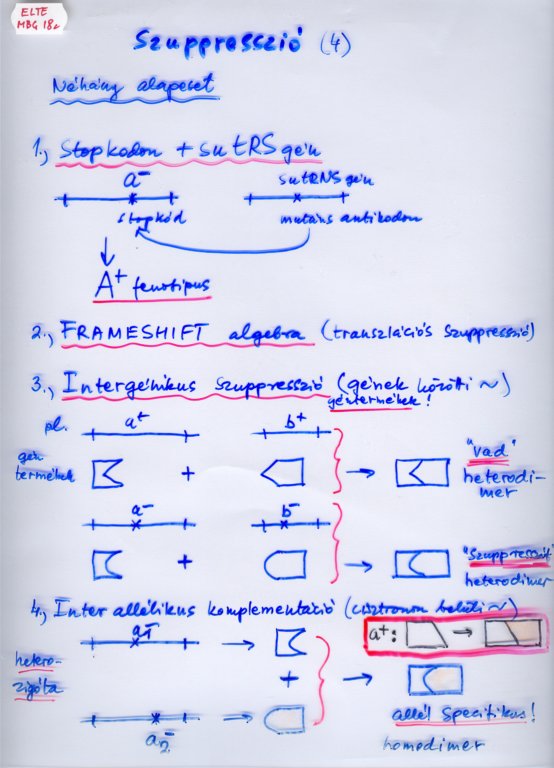 ELTE
MBG 18c
Szuppresszió (4)
Néhány alapeset
1., Stopkodon + su tRS gén
a⁻
su tRNS gén
stopkód
mutáns antikodon
A⁺ fenotipus
2., FRAMESHIFT algebra (transzlációs szuppresszió)
3., Intergénikus szuppresszió (gének közötti ~)
géntermékek!
pl. a⁺ b⁺
gén termékek
+
"vad"
heterodimer
a⁻ b⁻
+
"szuppresszált"
heterodimer
4., Inter allélikus komplementáció (cisztronon belüli ~)
a₁⁻
a⁺:
heterozigóta
+
allél specifikus!
a₂⁻
homodimer